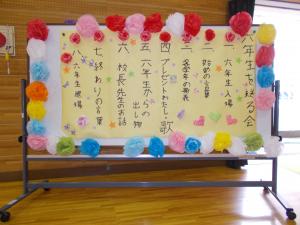 六年生を送る会
一、六年生入場
二、始めの言葉
三、各学年の発表
四、プレゼントわたし・歌
五、六年生からの出し物
六、校長先生のお話
七、終わりの言葉
八、六年生退場